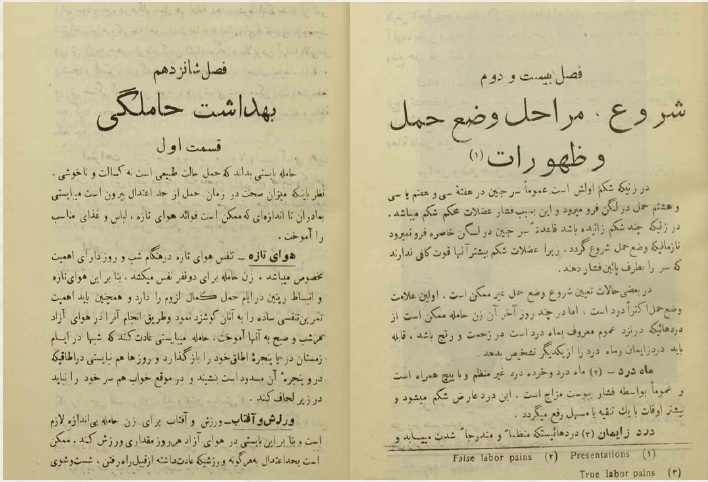 فصل بیست و دوم
شروع، مراحل وضع حمل
و ظهورات (۱)
در زنیکه شکم اولش است عموماً سر جنین در هفتهٔ سی و هفتم یا سی
و هشتم حمل در لگن فرو میرود و این بسبب فشار عضلات محکم شکم میباشد.
در زنیکه چند شکم زائیده باشد قاعدةً سر جنین در لگن خاصره فرو نمیرود
تا زمانیکه وضع حمل شروع گردد، زیرا عضلات شکم بیشتر آنها قوت کافی ندارند
که سر را بطرف پائین فشار دهند.
در بعضی حالات تعیین شروع وضع حمل غیر ممکن است. اولین علامت
وضع حمل اکثراً درد است، اما در چند روز آخر آن زن حامله ممکن است از
دردهائیکه در نزد عموم معروف بماه درد است در زحمت و رنج باشد. قابله
باید درد زایمان و ماه درد را از یکدیگر تشخیص بدهد.
ماه درد – (۲) ماه درد و خرده درد غیر منظم و با پیچ همراه است
و عموماً بواسطه فشار یبوست مزاج است. این درد عارض شکم میشود و
بیشتر اوقات با یك تنقیه یا مسهل رفع میگردد.
درد زایمان (۳) دردهائیستکه منظماً و متدرجاً شدت مییابد و
(۱) Presentations (۲) False labor pains
(۳) True labor pains
فصل شانزدهم
بهداشت حاملگی
قسمت اول
حامله بایستی بداند که حمل حالت طبیعی است نه کسالت و ناخوشی.
نظر باینکه میزان صحت در زمان حمل از حد اعتدال بیرون است میبایستی
بمادران تا اندازه‌ای که ممکن است فوائد هوای تازه، لباس و غذای مناسب
را آموخت.
هوای تازه – تنفس هوای تازه در هنگام شب و روز دارای اهمیت
مخصوص میباشد. زن حامله برای دو نفر نفس میکشد، بنا بر این هوای تازه
و انبساط ریتین در ایام حمل کمال لزوم را دارد و همچنین باید اهمیت
تمرین تنفسی ساده را به آنان گوشزد نمود و طریق انجام آنرا در هوای آزاد
هر شب و صبح به آنها آموخت. حامله میبایستی عادت کند که شبها در ایام
زمستان در یا پنجرهٔ اطاق خود را باز گذارد و روزها هم نبایستی در اطاقیکه
در و پنجرهٔ آن مسدود است نشیند و در موقع خواب هم سر خود را نباید
در زیر لحاف کند.
ورزش و آفتاب – ورزش و آفتاب برای زن حامله بی‌اندازه لازم
است و بنا بر این بایستی در هوای آزاد هر روز مقداری ورزش کند. ممکن
است بحد اعتدال به هر گونه ورزشیکه عادت داشته از قبیل راه رفتن، شست و شوی